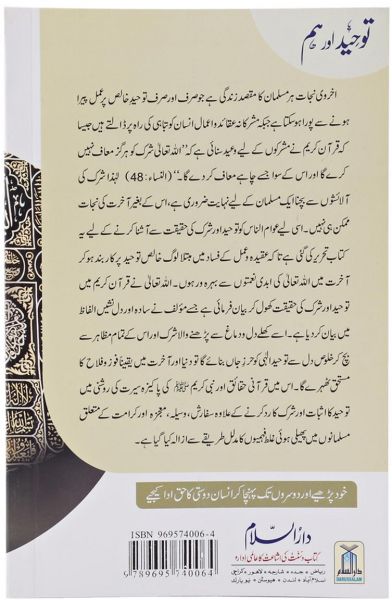 توحید اور ہم
اخروی نجات ہر مسلمان کا مقصد زندگی ہے جو صرف اور صرف توحید خالص پر عمل پیرا
ہونے سے پورا ہو سکتا ہے جبکہ مشرکانہ عقائد و اعمال انسان کو تباہی کی راہ پر ڈالتے ہیں جیسا
کہ قرآن کریم نے مشرکوں کے لیے وعید سنائی ہے کہ "اللہ تعالیٰ شرک کو ہرگز معاف نہیں
کرے گا اور اس کے سوا جسے چاہے معاف کر دے گا۔" (النساء: 48) لہٰذا شرک کی
آلائشوں سے بچنا ایک مسلمان کے لیے نہایت ضروری ہے، اس کے بغیر آخرت کی نجات
ممکن ہی نہیں۔ اسی لیے عوام الناس کو توحید اور شرک کی حقیقت سے آشنا کرنے کے لیے یہ
کتاب تحریر کی گئی ہے تاکہ عقیدہ و عمل کے فساد میں مبتلا لوگ خالص توحید پر کاربند ہو کر
آخرت میں اللہ تعالیٰ کی ابدی نعمتوں سے بہرہ ور ہوں۔ اللہ تعالیٰ نے قرآن کریم میں
توحید اور شرک کی حقیقت کھول کر بیان فرمائی ہے جسے مؤلف نے سادہ اور دل نشیں الفاظ
میں بیان کر دیا ہے۔ اسے کھلے دل و دماغ سے پڑھنے والا شرک اور اس کے تمام مظاہر سے
بچ کر خلوص دل سے توحید الٰہی کو حرز جاں بنائے گا تو دنیا اور آخرت میں یقیناً فوز و فلاح کا
مستحق ٹھہرے گا۔ اس میں قرآنی حقائق اور نبی کریم ﷺ کی پاکیزہ سیرت کی روشنی میں
توحید کا اثبات اور شرک کا رد کرنے کے علاوہ سفارش، وسیلہ، معجزہ اور کرامت کے متعلق
مسلمانوں میں پھیلی ہوئی غلط فہمیوں کا مدلل طریقے سے ازالہ کیا گیا ہے۔
خود پڑھیے اور دوسروں تک پہنچا کر انسان دوستی کا حق ادا کیجیے
ISBN 969574006-4
9 789695 740064
دارالسلام
کتاب و سنت کی اشاعت کا عالمی ادارہ
ریاض • جدہ • شارجہ • لاہور • کراچی
اسلام آباد • لندن • ہیوسٹن • نیویارک
دارالسلام
DARUSSALAM